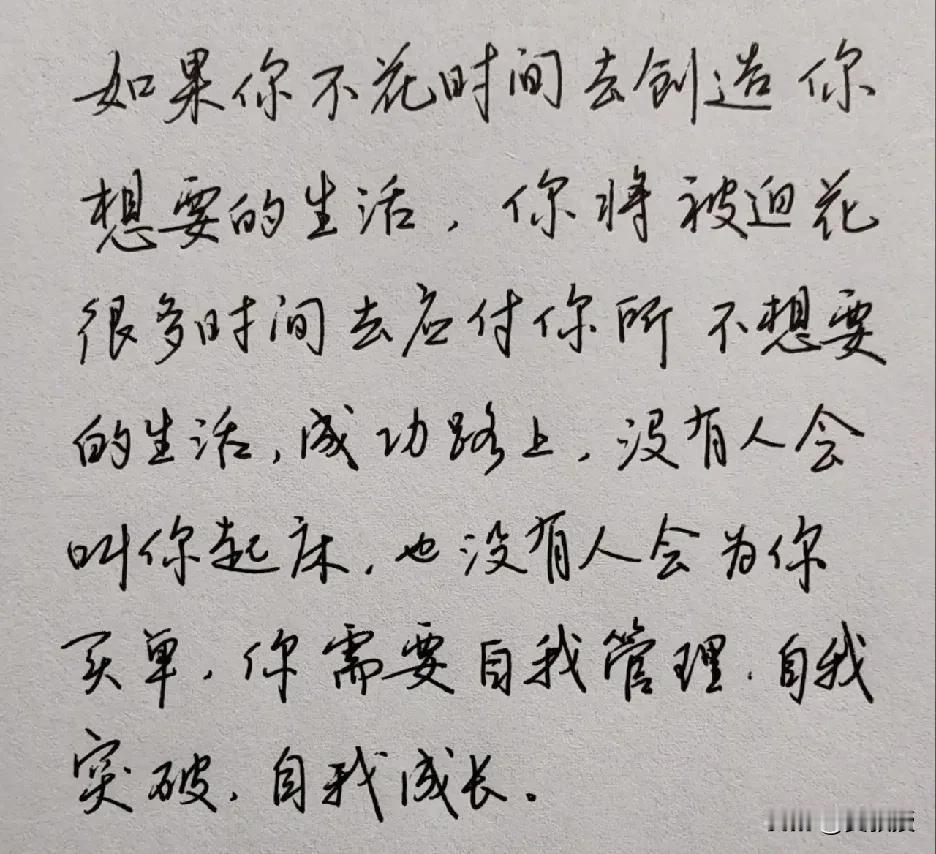 如果你不花时间去创造你
想要的生活，你将被迫花
很多时间去应付你所不想要
的生活，成功路上，没有人会
叫你起床，也没有人会为你
买单，你需要自我管理，自我
突破，自我成长。